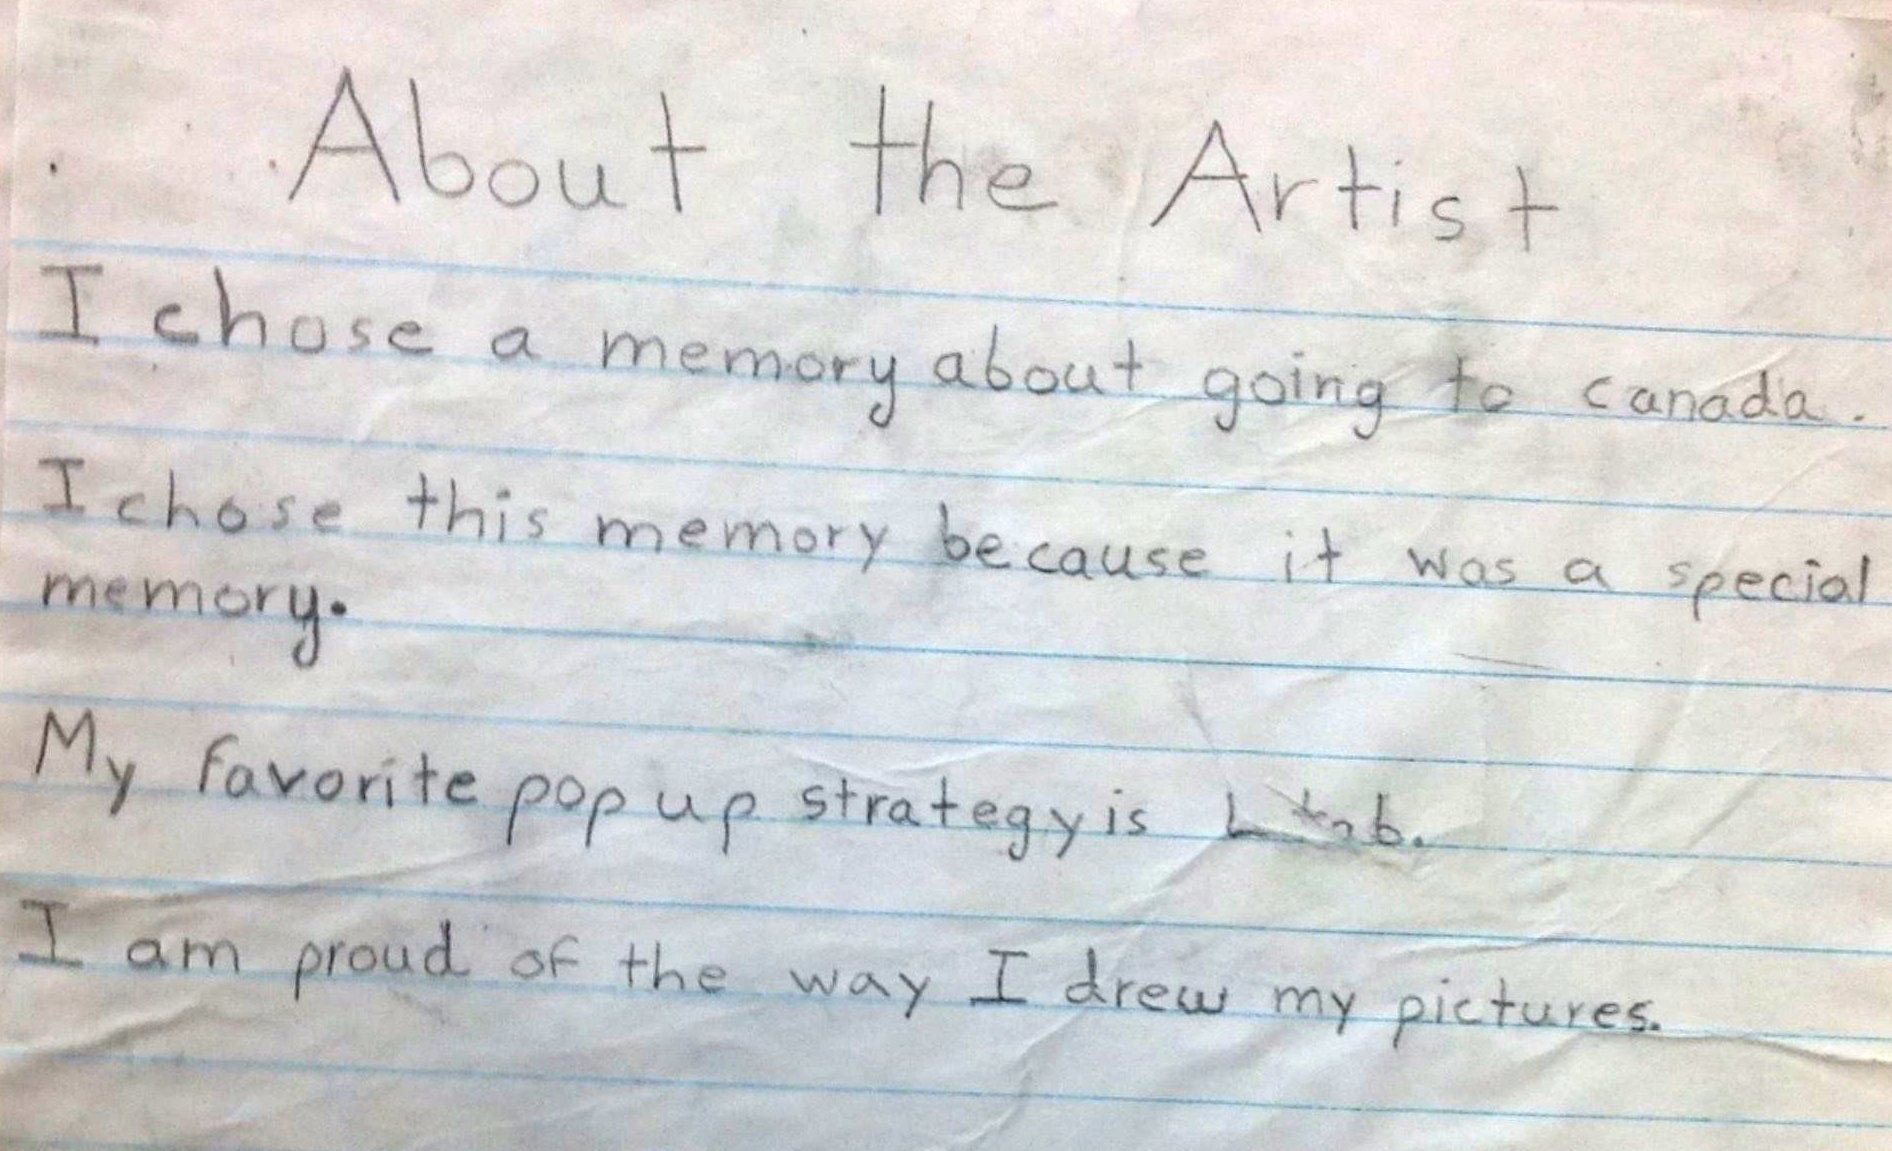 About the Artist
I chose a memory about going to canada.
I chose this memory because it was a special
memory.
My favorite pop up strategy is L tab.
I am proud of the way I drew my pictures.